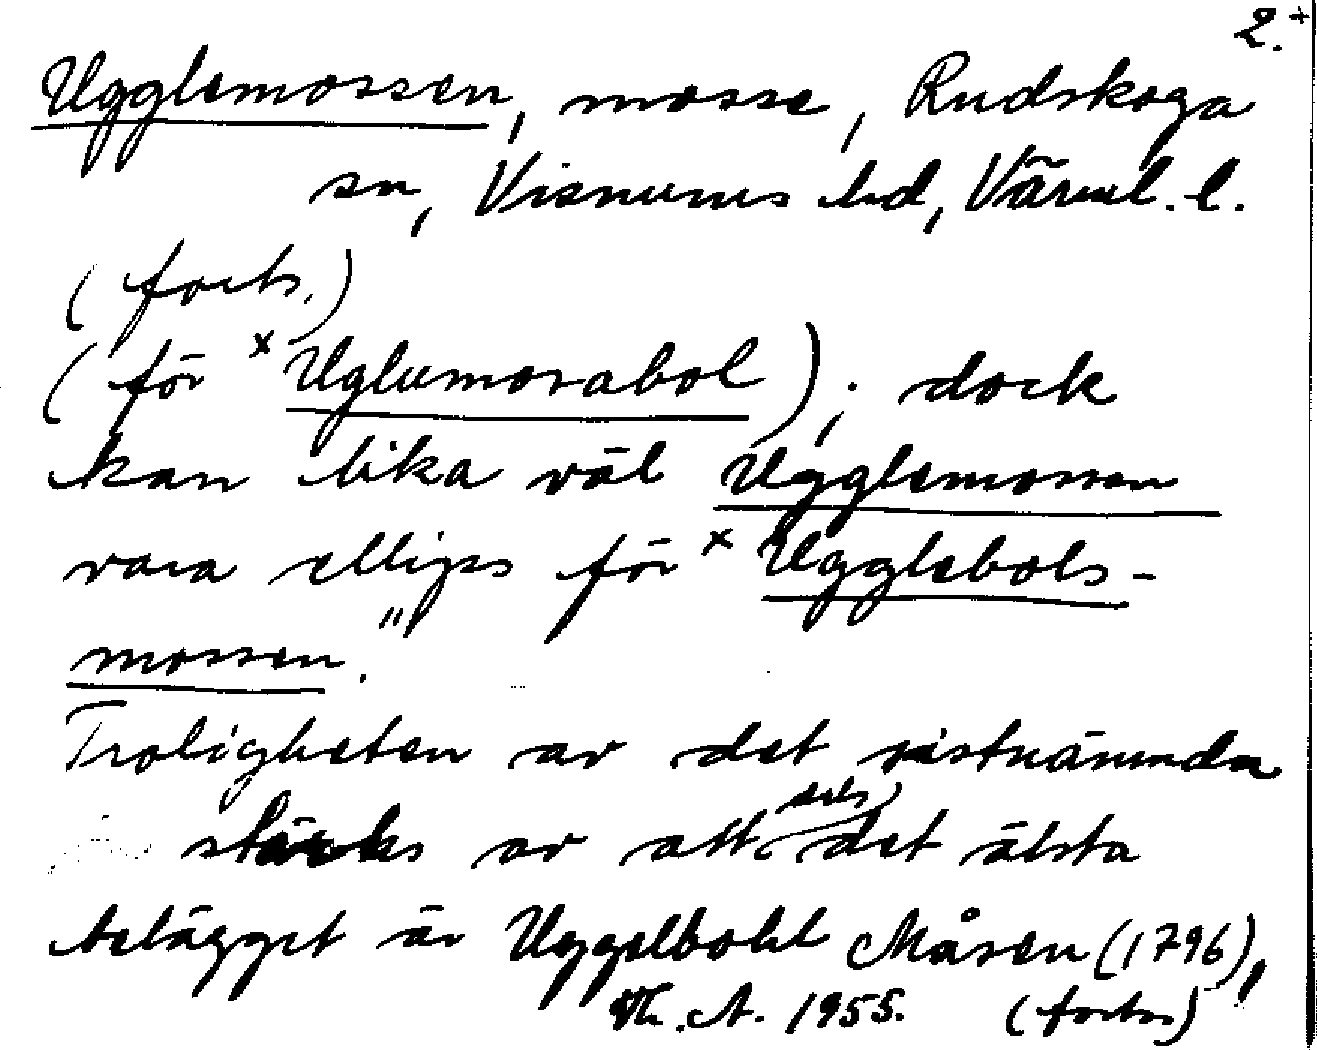 2.+
Ugglemossen, mosse, Rudskoga
sn, Visnums hd, Värml. l.
(forts.)
(för ×Uglumosabol); dock
kan lika väl Ugglemossen
vara ellips för ×Ugglebols-
mossen."
Troligheten av det sistnämnda
stärks av att dels det älsta
belägget är Uggelbohl Måsen (1796),
Th. A. 1955. (forts)